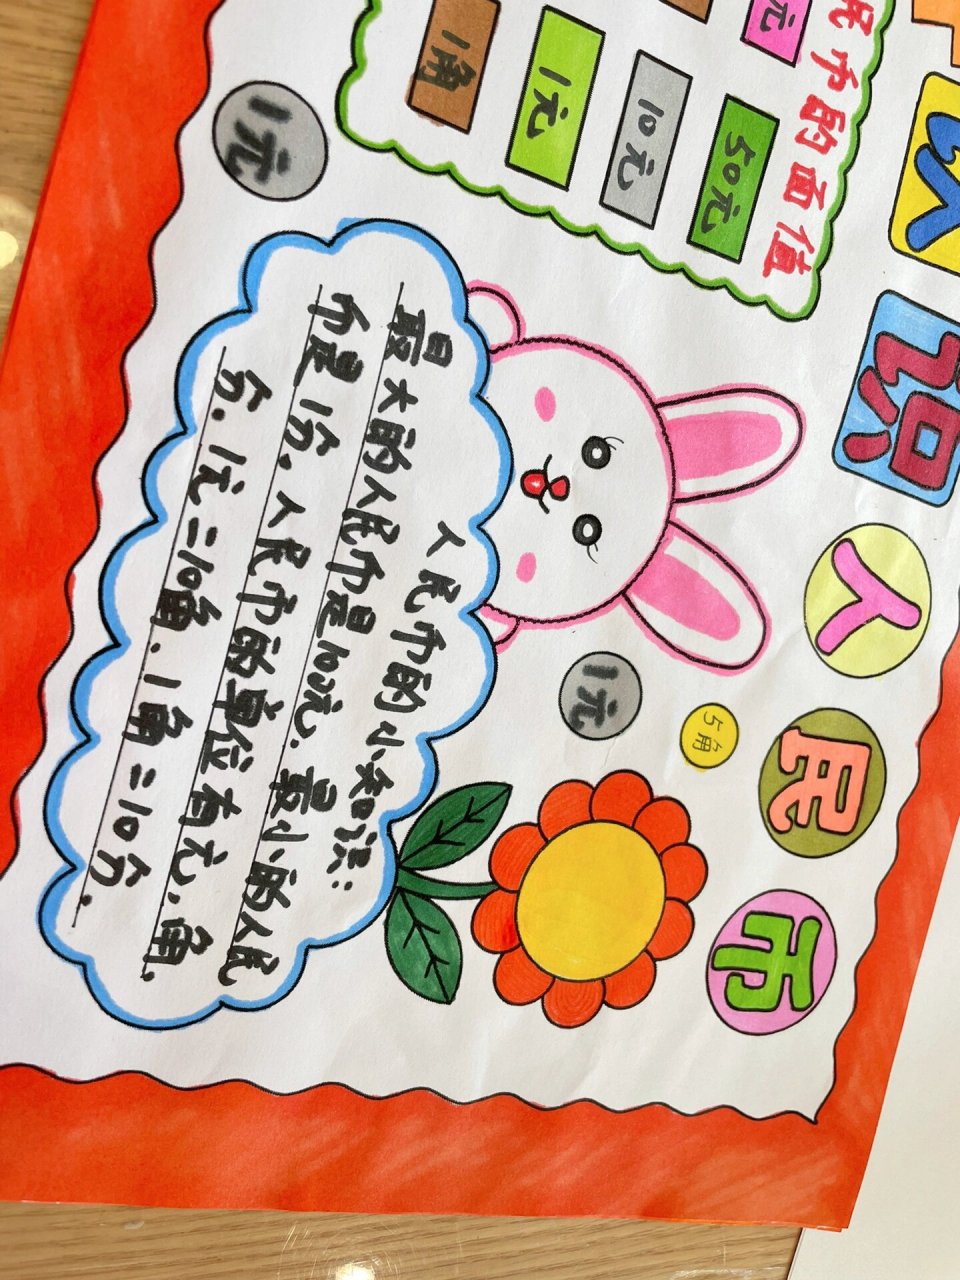 认识人民币
民币的面值
元
50元
10元
1元
1角
1元
1元
5角
人民币的小知识:
最大的人民币是100元.最小的人民
币是1分.人民币的单位有元.角.
分.1元=10角.1角=10分.